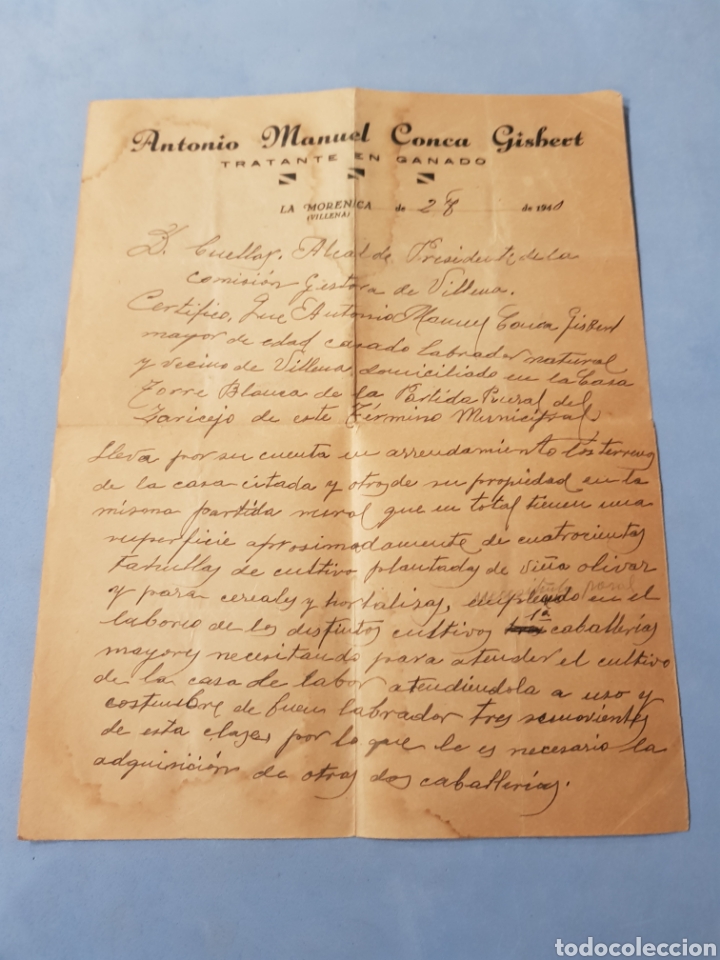 Antonio Manuel Conca Gisbert
TRATANTE EN GANADO
LA MORENICA de 28 de 1940
(VILLENA)
D. Cuellar, Alcalde Presidente de la
comisión Gestora de Villena.
Certifico, Que Antonio Manuel Conca Gisbert
mayor de edad casado labrador natural
y vecino de Villena, domiciliado en la Casa
Torre Blanca de la Partida Rural del
Zaricejo de este Término Municipal,
lleva por su cuenta en arrendamiento los terrenos
de la casa citada y otros de su propiedad en la
misma partida rural que en total tienen una
superficie aprosimadamente de cuatrocientas
tahullas de cultivo plantadas de viña olivar
y para cereales y hortalizas, empleando en el
laboreo de los distintos cultivos caballerías
mayores necesitando para atender el cultivo
de la casa de labor atendiéndola a uso y
costumbre de buen labrador tres semovientes
de esta clase, por lo que le es necesario la
adquisición de otras dos caballerías.
todocoleccion